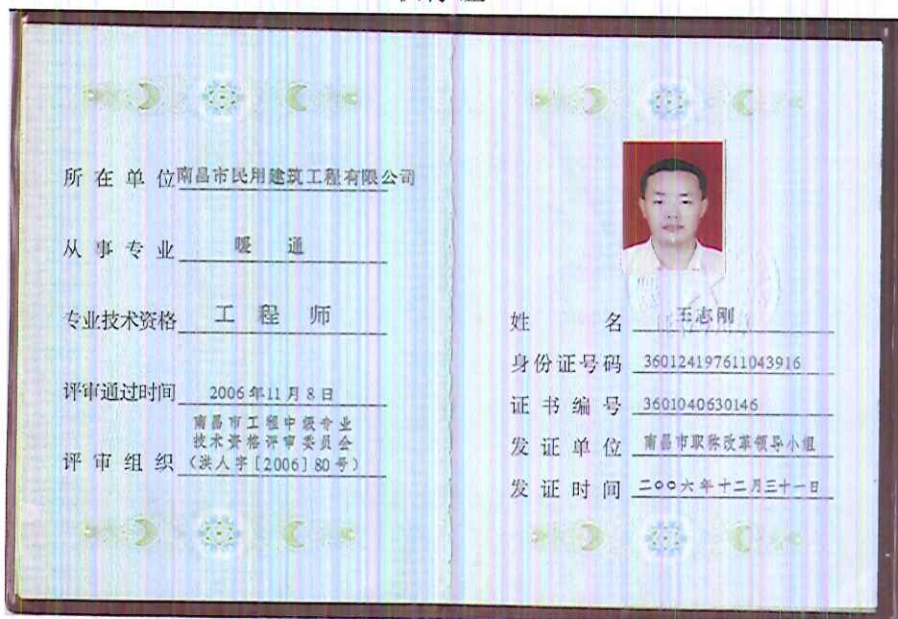 所在单位 南昌市民用建筑工程有限公司
从事专业 暖通
专业技术资格 工程师
评审通过时间 2006年11月8日
评审组织 南昌市工程中级专业
技术资格评审委员会
（洪人字［2006］80号）
姓名 王志刚
身份证号码 360124197611043916
证书编号 3601040630146
发证单位 南昌市职称改革领导小组
发证时间 二〇〇六年十二月三十一日